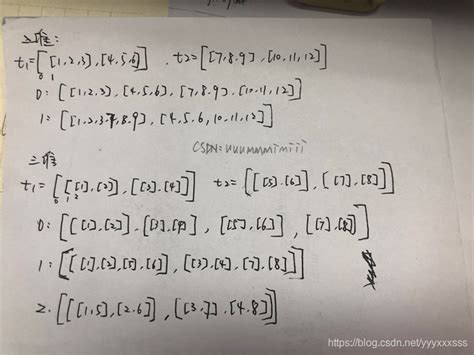 二维:
t1=[[1,2,3],[4,5,6]] , t2=[[7,8,9],[10,11,12]]
0 1
0: [[1,2,3],[4,5,6],[7,8,9],[10,11,12]]
1: [[1,2,3,7,8,9],[4,5,6,10,11,12]]
CSDN:uuummmmimiii
三维
t1=[[[1],[2]],[[3],[4]]] t2=[[[5],[6]],[[7],[8]]]
0 1 2
0: [[[1],[2]],[[3],[4]],[[5],[6]],[[7],[8]]]
1: [[[1],[2],[5],[6]],[[3],[4],[7],[8]]]
2. [[[1,5],[2,6]],[[3,7],[4,8]]]
https://blog.csdn.net/yyyxxxsss